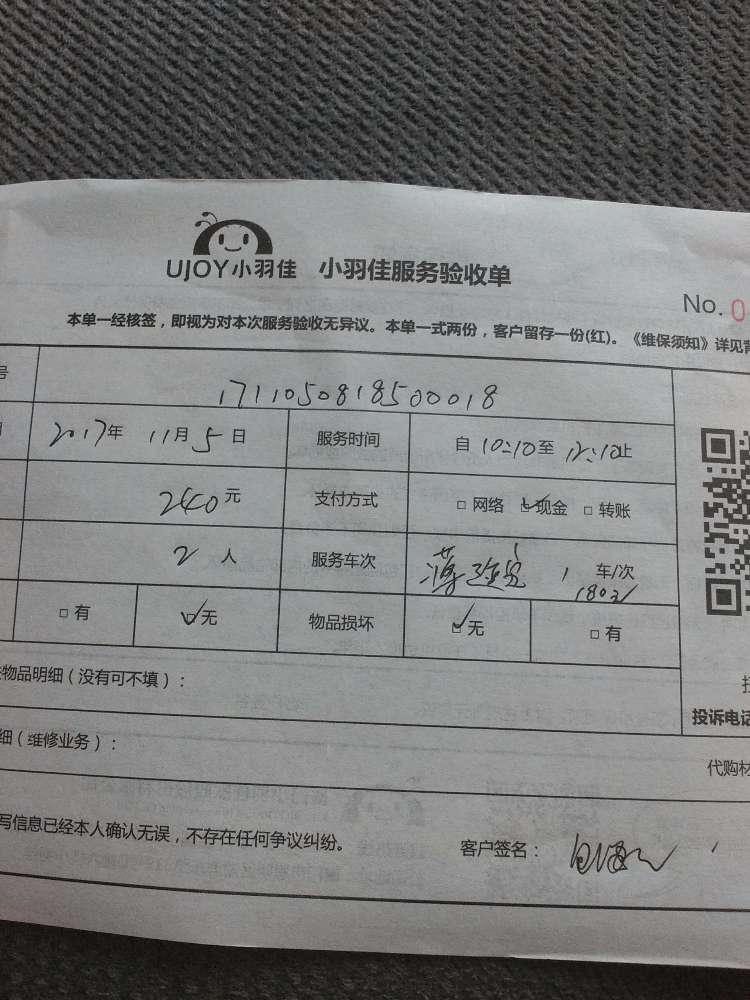 UJOY小羽佳 小羽佳服务验收单
No. 0
本单一经核签，即视为对本次服务验收无异议。本单一式两份，客户留存一份(红)。《维保须知》详见背
号 1711050818500018
2017年 11月5日 服务时间 自10:10至12:10止
240元 支付方式 □网络 ☑现金 □转账
2人 服务车次 1 车/次
1803
□有 ☑无 物品损坏 ☑无 □有
物品明细（没有可不填）：
投诉电话
细（维修业务）：
代购材
写信息已经本人确认无误，不存在任何争议纠纷。 客户签名：